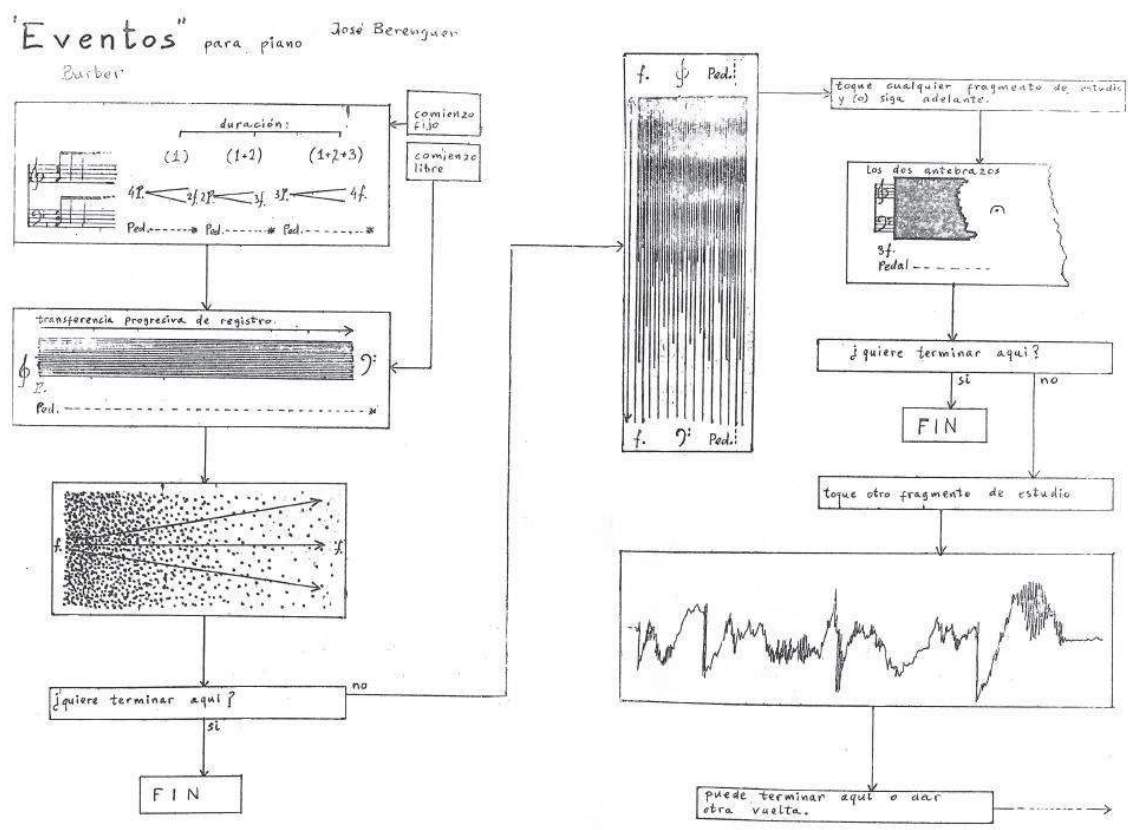 "Eventos" para piano José Berenguer
Barber
comienzo
fijo
comienzo
libre
duración:
(1) (1+2) (1+2+3)
4p. 2f. 2p. 3f. 3p. 4f.
Ped. Ped. Ped.
transferencia progresiva de registro.
P.
Ped.
f. f.
¿quiere terminar aquí?
no
si
FIN
f. Ped.
f. Ped.
toque cualquier fragmento de estudio
y (o) siga adelante.
Los dos antebrazos
3f.
Pedal
¿quiere terminar aquí?
si no
FIN
toque otro fragmento de estudio
puede terminar aquí o dar
otra vuelta.